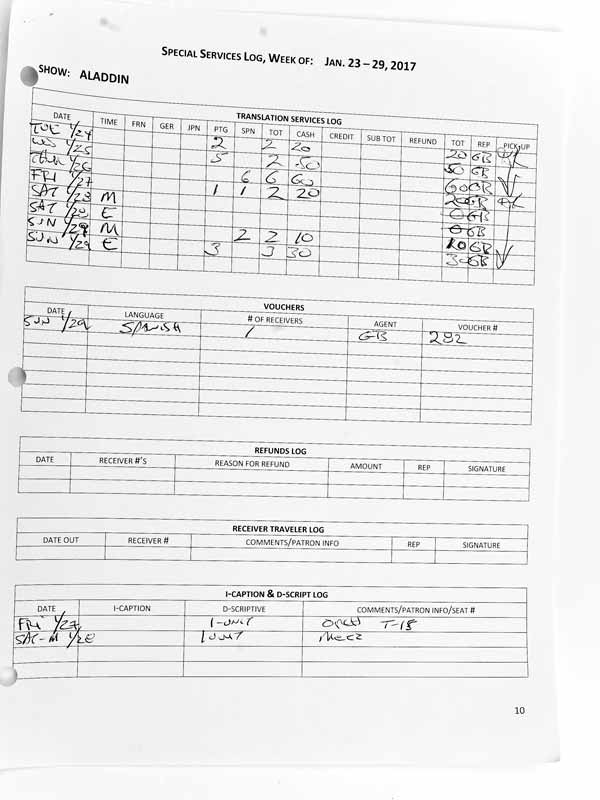 SPECIAL SERVICES LOG, WEEK OF: JAN. 23 – 29, 2017
SHOW: ALADDIN
TRANSLATION SERVICES LOG
DATE TIME FRN GER JPN PTG SPN TOT CASH CREDIT SUB TOT REFUND TOT REP PICK UP
TUE 1/24 2 2 20 20 GB
1/25 5 2 50 50 GB
1/26 6 6 60 60 GB
FRI 1/27 1 1 2 20 20 GB
SAT 1/28 M 0 GB
SAT E 0 GB
SUN 1/29 M 2 2 10 10 GB
SUN 1/29 E 3 3 30 30 GB
VOUCHERS
DATE LANGUAGE # OF RECEIVERS AGENT VOUCHER #
SUN 1/29 SPANISH 1 GB 292
REFUNDS LOG
DATE RECEIVER #'S REASON FOR REFUND AMOUNT REP SIGNATURE
RECEIVER TRAVELER LOG
DATE OUT RECEIVER # COMMENTS/PATRON INFO REP SIGNATURE
I-CAPTION & D-SCRIPT LOG
DATE I-CAPTION D-SCRIPTIVE COMMENTS/PATRON INFO/SEAT #
FRI 1/27 1-UNIT ORCH T-18
SAT-M 1/28 1 UNIT MEZZ
10